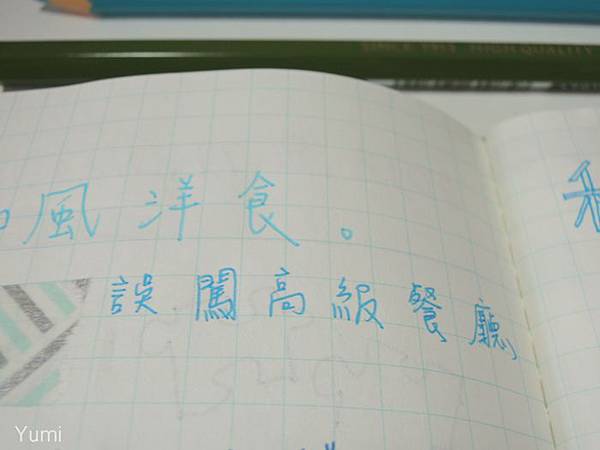 SINCE 1913 HIGH QUALITY
風洋食。
誤闖高級餐廳
Yumi